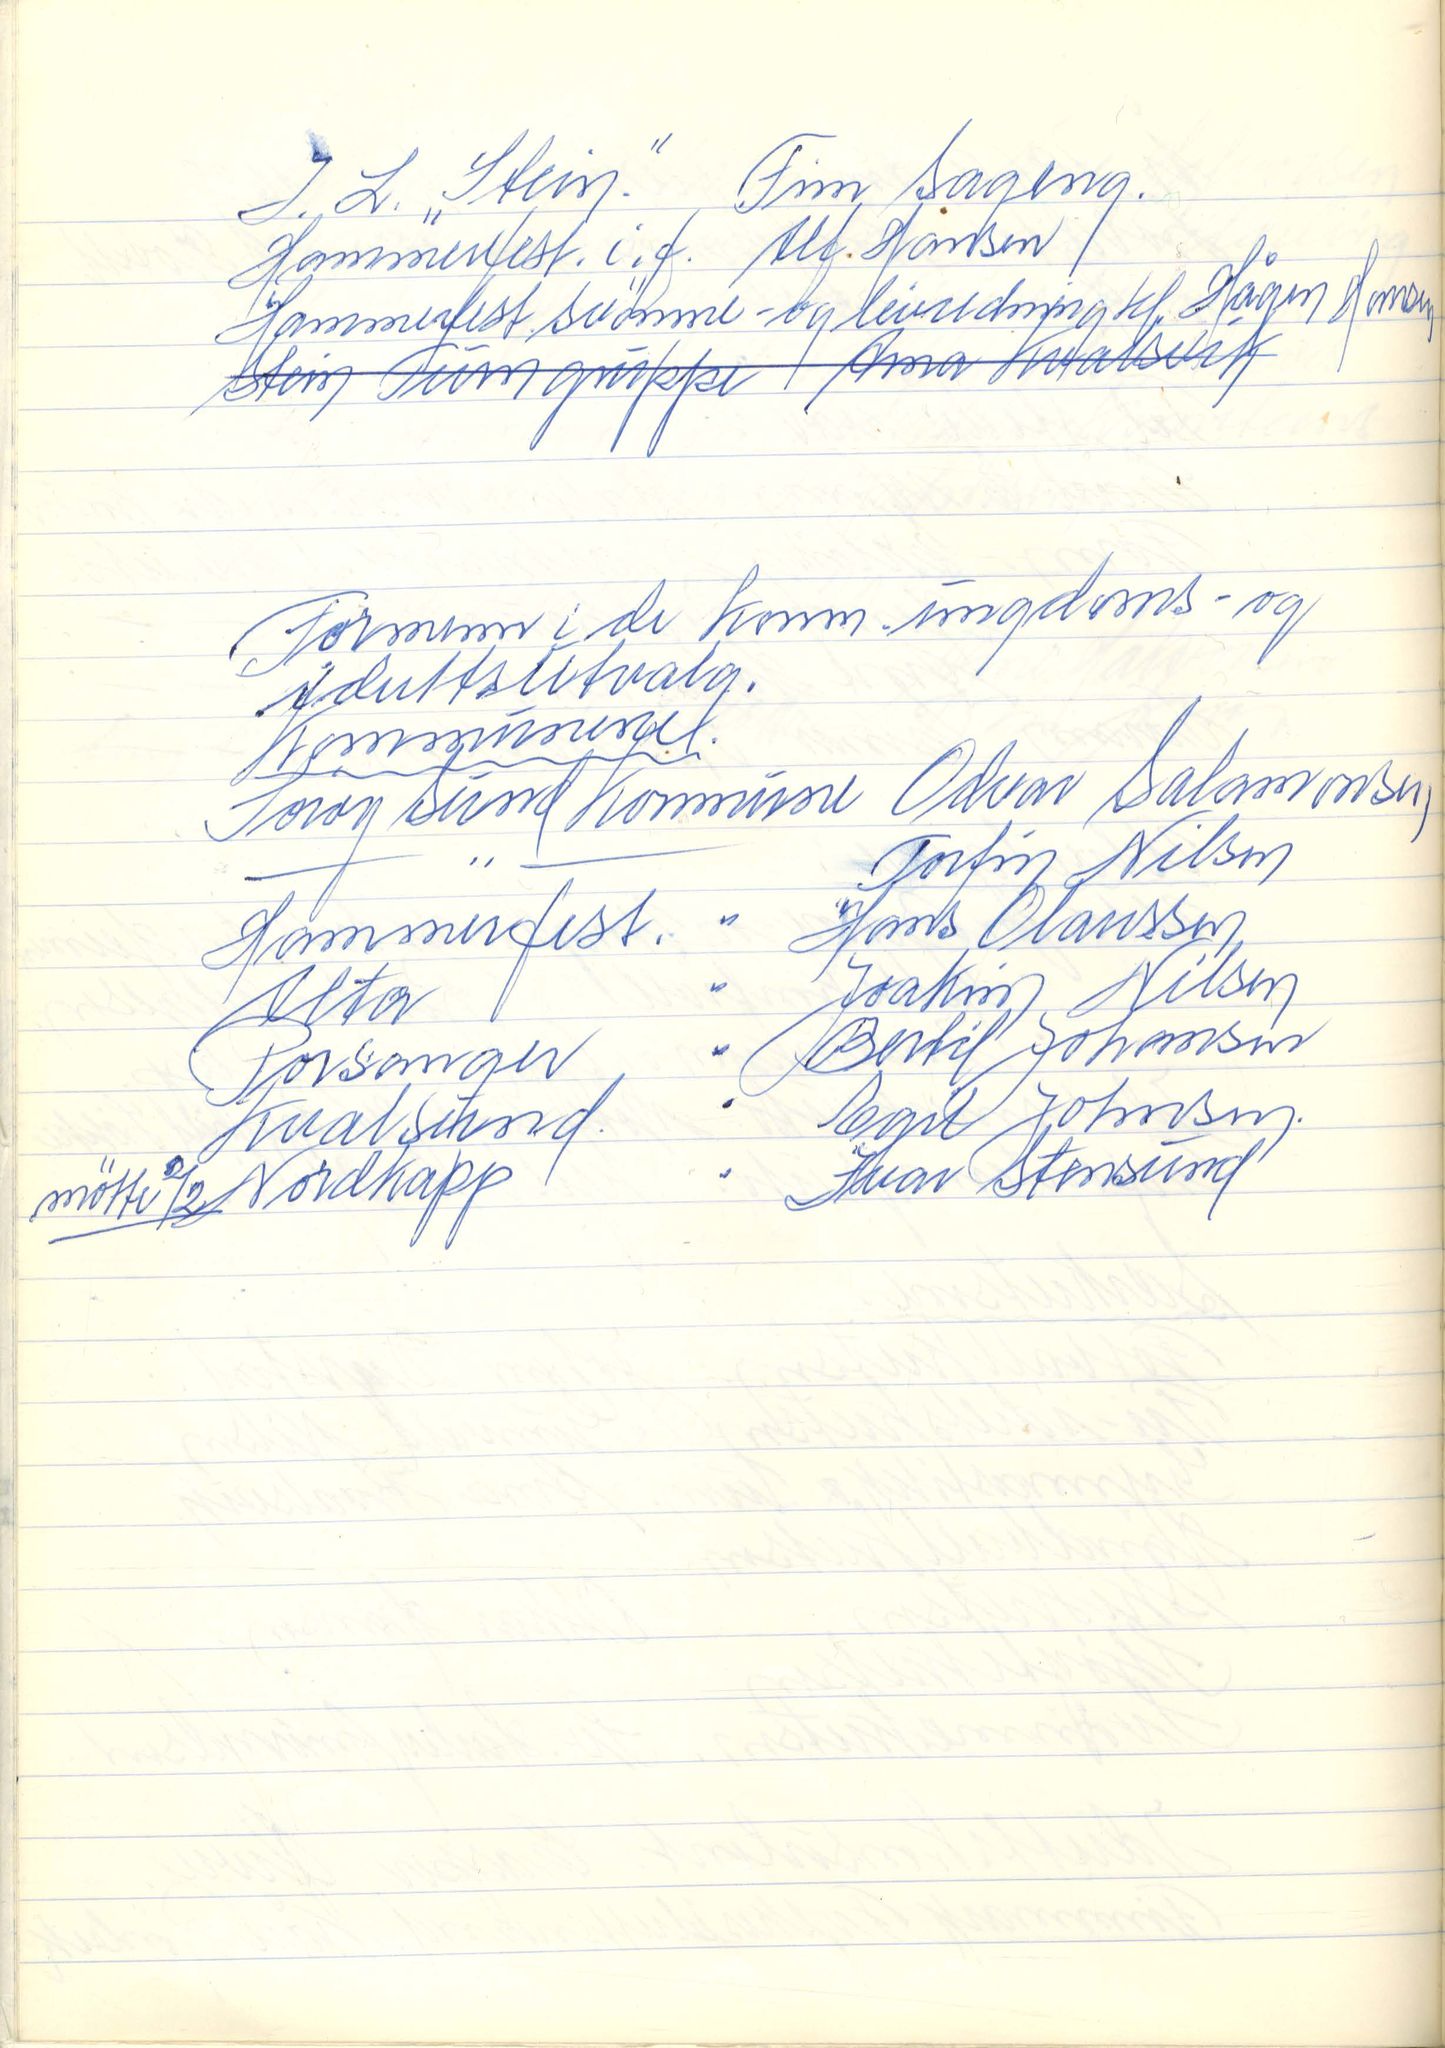 I. L. „Stein." Finn Sageng.
Hammerfest. i. f. Alf. Hansen
Hammerfest svömme - og livredning kl. Hågen Hansen
Stein Turngruppe Arna Kvalsvik
Formenn i de Komm. ungdoms - og
idrettsutvalg.
Kommunene.
Söröysund Kommune Odvar Salamonsen
— " — Torfin Nilsen
Hammerfest. " Hans Olaussen
Alta " Joakim Nilsen
Porsanger " Bertil Johansen
Kvalsund. " Egil Johnsen.
mötte 2/2 Nordkapp " Ivar Stensund